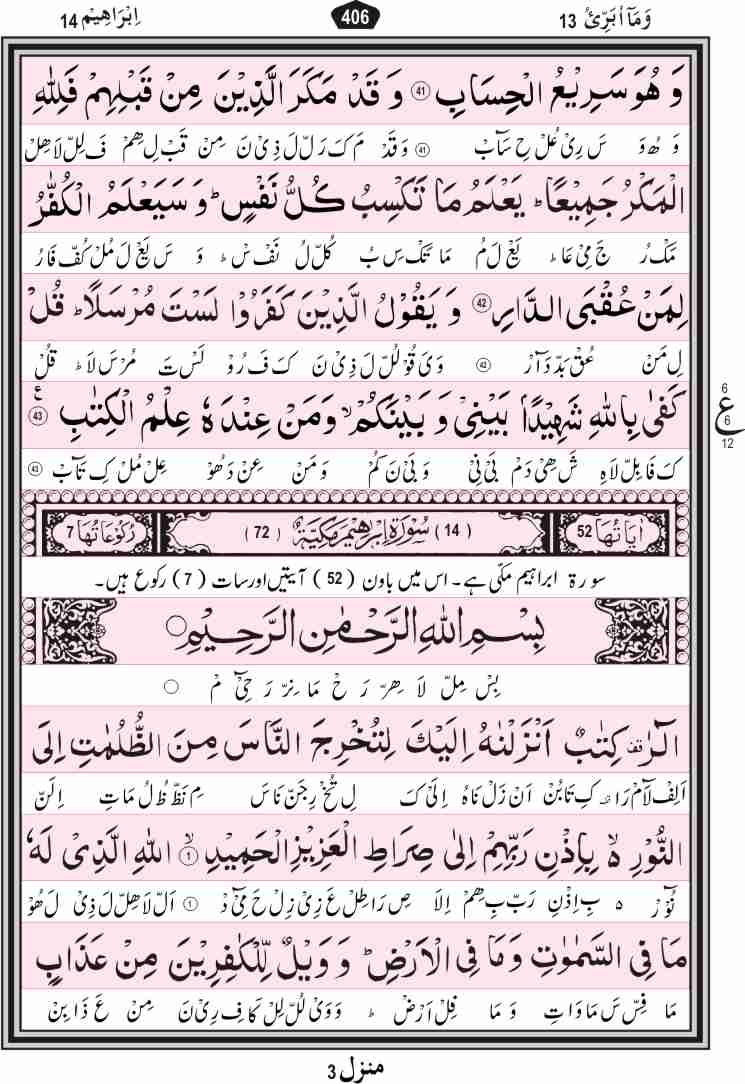 وَمَآ اُبَرِّئُ 13
406
اِبْرَاهِيْم 14
وَ هُوَ سَرِيْعُ الْحِسَابِ ﴿41﴾ وَ قَدْ مَكَرَ الَّذِيْنَ مِنْ قَبْلِهِمْ فَلِلّٰهِ
وَ هُوَ سَ رِىْ عُلْ حِ سَآبْ 41 وَقَدْ مَ كَ رَ لْ لَ ذِىْ نَ مِنْ قَبْ لِ هِمْ فَ لِلْ لَاهِلْ
الْمَكْرُ جَمِيْعًا ؕ يَعْلَمُ مَا تَكْسِبُ كُلُّ نَفْسٍ ؕ وَ سَيَعْلَمُ الْكُفّٰرُ
مَكْ رُ جَ مِىْ عَا ؕ يَعْ لَ مُ مَا تَكْ سِ بُ كُلْ لُ نَفْ سْ ؕ وَ سَ يَعْ لَ مُلْ كُفْ فَا رُ
لِمَنْ عُقْبَى الدَّارِ ﴿42﴾ وَ يَقُوْلُ الَّذِيْنَ كَفَرُوْا لَسْتَ مُرْسَلًا ؕ قُلْ
لِ مَنْ عُقْ بَدْ دَآرْ 42 وَ يَ قُوْ لُلْ لَ ذِىْ نَ كَ فَ رُوْ لَسْ تَ مُرْ سَ لَا ؕ قُلْ
كَفٰى بِاللّٰهِ شَهِيْدًاۢ بَيْنِىْ وَ بَيْنَكُمْ ۙ وَمَنْ عِنْدَهٗ عِلْمُ الْكِتٰبِ ﴿43﴾ ع
6
ع
6
12
كَ فَا بِلْ لَاهِ شَ هِىْ دَمْ بَىْ نِىْ وَ بَىْ نَ كُمْ وَ مَنْ عِنْ دَ هُوْ عِلْ مُلْ كِ تَآبْ 43
اٰيَاتُهَا 52
(14) سُوْرَةُ اِبْرٰهِيْمَ مَكِّيَّةٌ (72)
رُكُوْعَاتُهَا 7
سورۃ ابراہیم مکی ہے۔ اس میں باون (52) آیتیں اور سات (7) رکوع ہیں۔
بِسْمِ اللّٰهِ الرَّحْمٰنِ الرَّحِيْمِ ○
بِسْ مِلْ لَا هِرْ رَحْ مَا نِرْ رَ حِىْٓ مْ ○
الٓرٰ ۟ كِتٰبٌ اَنْزَلْنٰهُ اِلَيْكَ لِتُخْرِجَ النَّاسَ مِنَ الظُّلُمٰتِ اِلَى
اَلِفْ لَآمْ رَا كِ تَا بُنْ اَنْ زَلْ نَاهُ اِلَىْ كَ لِ تُخْ رِ جَنْ نَاسَ مِ نَظْ ظُ لُ مَاتِ اِلَنْ
النُّوْرِ ۙ بِاِذْنِ رَبِّهِمْ اِلٰى صِرَاطِ الْعَزِيْزِ الْحَمِيْدِ ۙ ﴿1﴾ اللّٰهِ الَّذِىْ لَهٗ
نُوْ رِ ه بِ اِذْنِ رَبْ بِ هِمْ اِلَا صِ رَا طِلْ عَ زِىْ زِلْ حَ مِىْٓ دْ 1 اَلْ لَاهِلْ لَ ذِىْ لَ هُوْ
مَا فِى السَّمٰوٰتِ وَمَا فِى الْاَرْضِ ؕ وَ وَيْلٌ لِّلْكٰفِرِيْنَ مِنْ عَذَابٍ
مَا فِسْ سَ مَا وَاتِ وَ مَا فِلْ اَرْضْ ؕ وَ وَىْ لُلْ لِلْ كَا فِ رِىْ نَ مِنْ عَ ذَا بِنْ
منزل 3